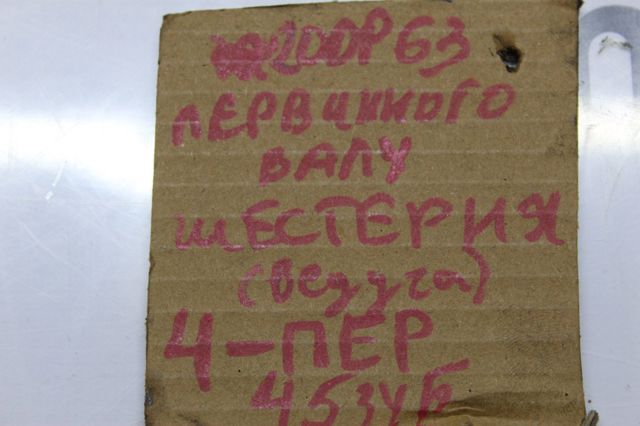 200Р63
ПЕРВИННОГО
ВАЛУ
ШЕСТЕРНЯ
(ведуча)
4-ПЕР
45 ЗУБ